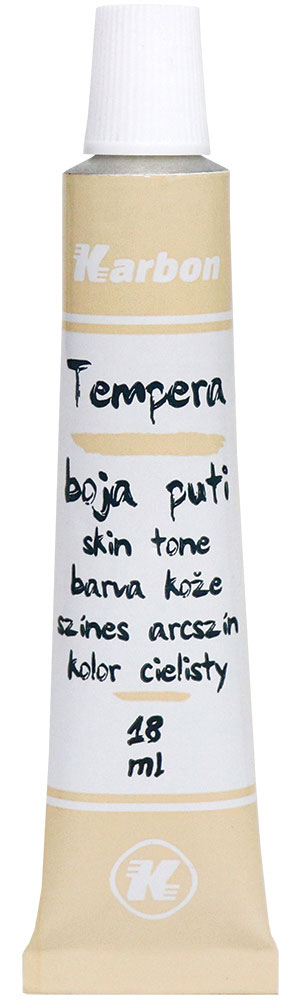 Karbon
Tempera
boja puti
skin tone
barva kože
színes arcszín
kolor cielisty
18
ml
K